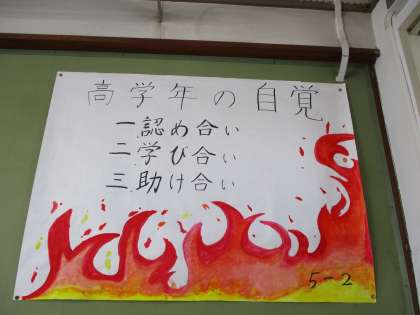 高学年の自覚
一認め合い
二学び合い
三助け合い
5-2